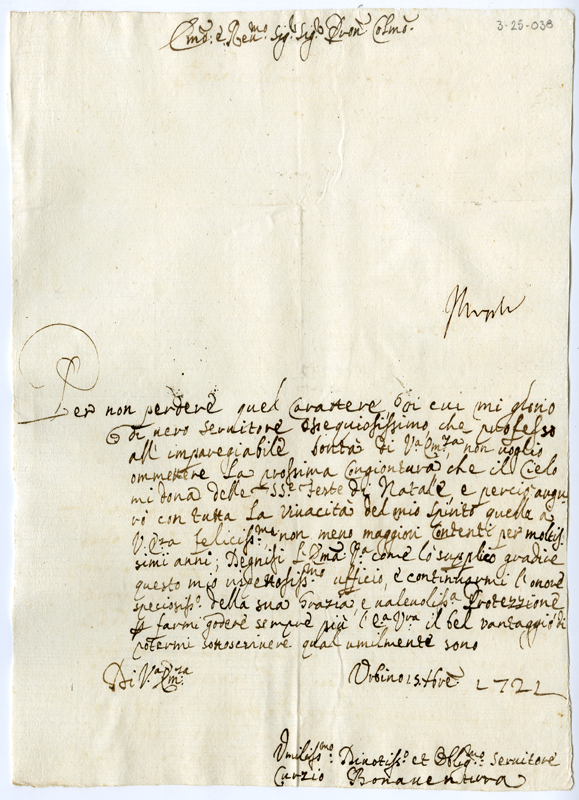 3-25-038
Em̃o: e Reu.mo Sig.r Sig.r Pron̄ Colmo:
Per non perdere quel Carattere di cui mi glorio
di uero seruitore ossequiosissimo, che professo
all'impareggiabile bontà di V.a Em.za, non uoglio
ommettere la prossima Congiontura che il Cielo
mi dona delle SS.e feste di Natale, e perciò augu-
rò con tutta la viuacità del mio spirito quelle a
V.Eza feliciss.me non meno maggiori Contenti per moltis-
simi anni; Degnisi l'Em̃a V.a come lo supplico gradire
questo mio rispettosiss.mo ufficio, e continuarmi l'onore
speciosiss.o della sua Grazia e ualeuoliss.a Protezzione
farmi godere sempre più l'E.a Vra il bel vantaggio di
potermi sottoscriuere qual umilmente sono
Di V.a Em.za Urbino 15 Xbre 1721
Vmiliss.mo Diuotiss.o et Oblig.mo Seruitore
Curzio Bonauentura